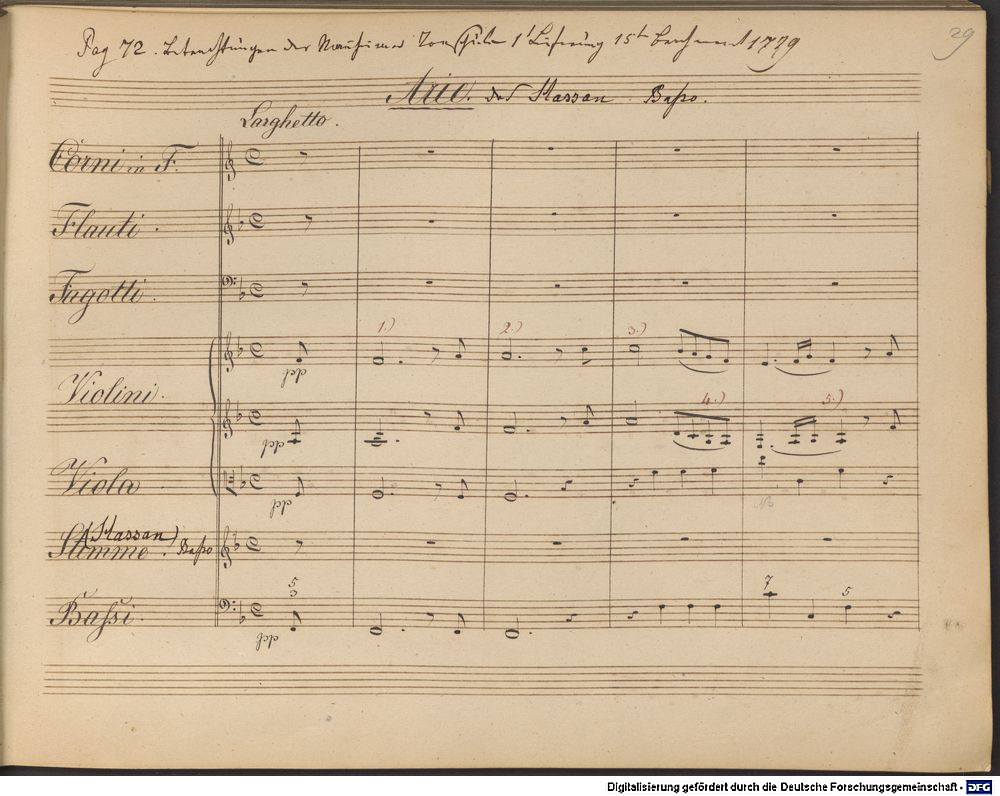 Pag 72. Betrachtungen der Manheimer Tonschule 1t Lieferung 15ten Brachmonat 1779
29
Arie. des Hassan. Basso.
Larghetto.
Corni in F.
Flauti.
Fagotti.
1.) 2.) 3.)
Violini.
ppp
4.) 5.)
ppp
Viola
ppp
NB
(Hassan)
Stimme. Basso
5 3 7 5
Bassi.
ppp
Digitalisierung gefördert durch die Deutsche Forschungsgemeinschaft - DFG